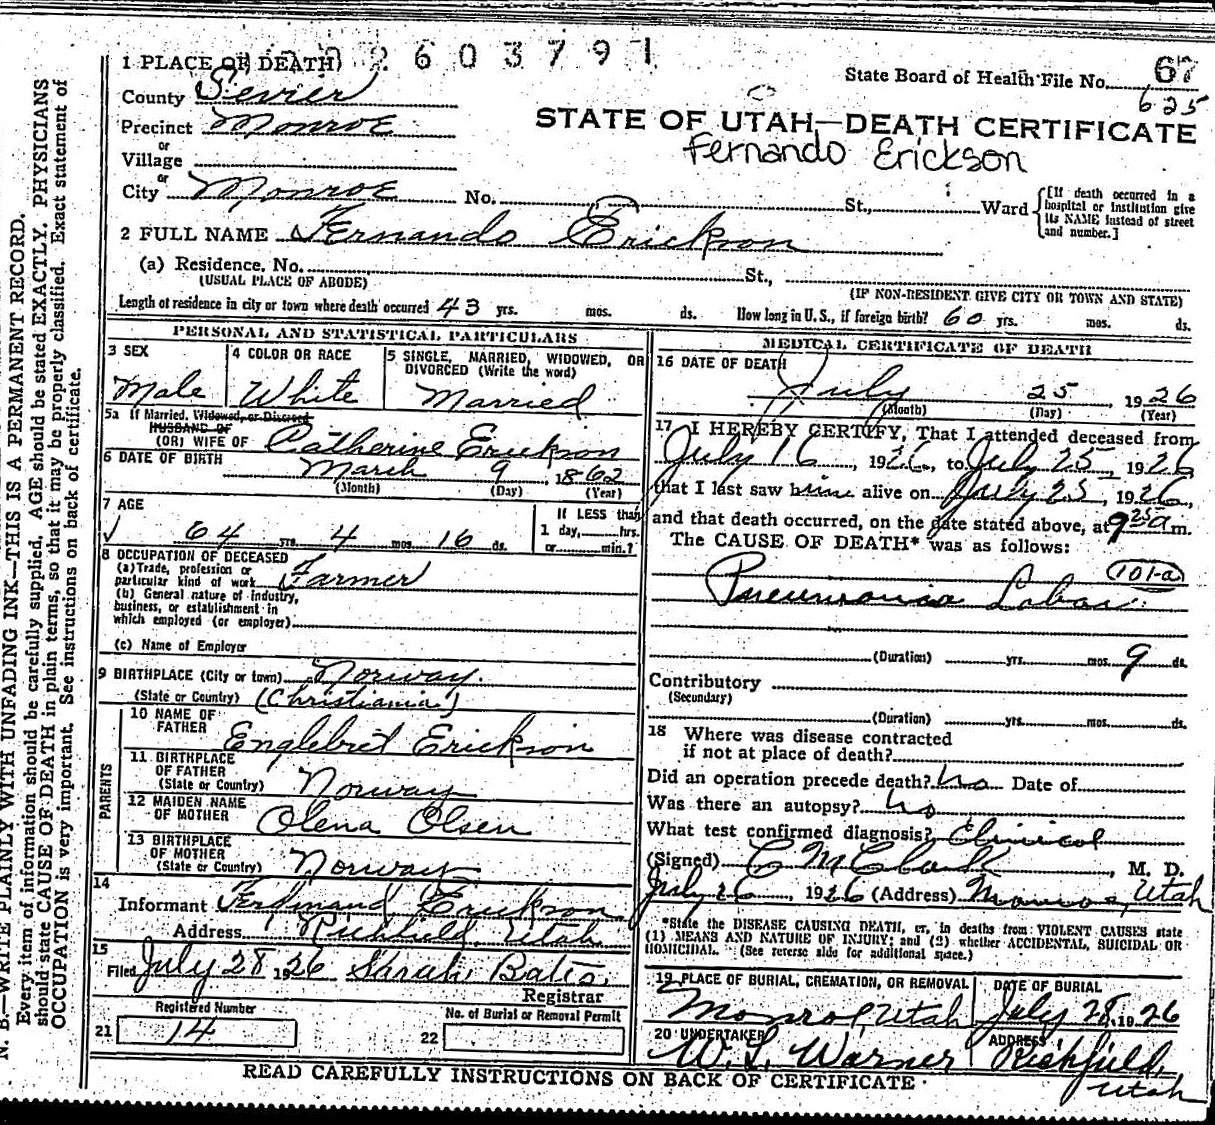 N. B.—WRITE PLAINLY WITH UNFADING INK—THIS IS A PERMANENT RECORD.
Every item of information should be carefully supplied. AGE should be stated EXACTLY. PHYSICIANS
should state CAUSE OF DEATH in plain terms, so that it may be properly classified. Exact statement of
OCCUPATION is very important. See instructions on back of certificate.
2603791
1 PLACE OF DEATH
State Board of Health File No. 67
625
County Sevier
Precinct Monroe
STATE OF UTAH—DEATH CERTIFICATE
Fernando Erickson
or
Village
or
City Monroe No. St., Ward
[If death occurred in a
hospital or institution give
its NAME instead of street
and number.]
2 FULL NAME Fernando Erickson
(a) Residence. No. St.,
(USUAL PLACE OF ABODE)
(IF NON-RESIDENT GIVE CITY OR TOWN AND STATE)
Length of residence in city or town where death occurred 43 yrs. mos. ds. How long in U. S., if foreign birth? 60 yrs. mos. ds.
PERSONAL AND STATISTICAL PARTICULARS
3 SEX
Male
4 COLOR OR RACE
White
5 SINGLE, MARRIED, WIDOWED, OR
DIVORCED (Write the word)
Married
5a If Married, Widowed, or Divorced
HUSBAND OF
(OR) WIFE OF Catherine Erickson
6 DATE OF BIRTH March 9, 1862
(Month) (Day) (Year)
7 AGE
64 yrs. 4 mos. 16 ds.
If LESS than
1 day, hrs.
or min.?
8 OCCUPATION OF DECEASED
(a) Trade, profession or
particular kind of work Farmer
(b) General nature of industry,
business, or establishment in
which employed (or employer)
(c) Name of Employer
9 BIRTHPLACE (City or town) Norway.
(State or Country) (Christiania)
PARENTS
10 NAME OF
FATHER Englebret Erickson
11 BIRTHPLACE
OF FATHER
(State or Country) Norway
12 MAIDEN NAME
OF MOTHER Olena Olsen
13 BIRTHPLACE
OF MOTHER
(State or Country) Norway
14
Informant Ferdinand Erickson
Address Richfield, Utah
15
Filed July 28 1926 Sarah Bates.
Registrar
Registered Number
21 14
No. of Burial or Removal Permit
22
MEDICAL CERTIFICATE OF DEATH
16 DATE OF DEATH
July 25 1926
(Month) (Day) (Year)
17 I HEREBY CERTIFY, That I attended deceased from
July 16, 1926, to July 25, 1926
that I last saw him alive on July 25, 1926,
and that death occurred, on the date stated above, at 9 25 a m.
The CAUSE OF DEATH* was as follows:
101-a
Pneumonia Lobar
(Duration) yrs. mos. 9 ds.
Contributory
(Secondary)
(Duration) yrs. mos. ds.
18 Where was disease contracted
if not at place of death?
Did an operation precede death? No Date of
Was there an autopsy? No
What test confirmed diagnosis? Clinical
(Signed) C M Clark, M. D.
July 26, 1926 (Address) Monroe, Utah
*State the DISEASE CAUSING DEATH, or, in deaths from VIOLENT CAUSES state
(1) MEANS AND NATURE OF INJURY; and (2) whether ACCIDENTAL, SUICIDAL OR
HOMICIDAL. (See reverse side for additional space.)
19 PLACE OF BURIAL, CREMATION, OR REMOVAL
Monroe, Utah
DATE OF BURIAL
July 28, 1926
20 UNDERTAKER
W. L. Warner
ADDRESS
Richfield,
Utah
READ CAREFULLY INSTRUCTIONS ON BACK OF CERTIFICATE